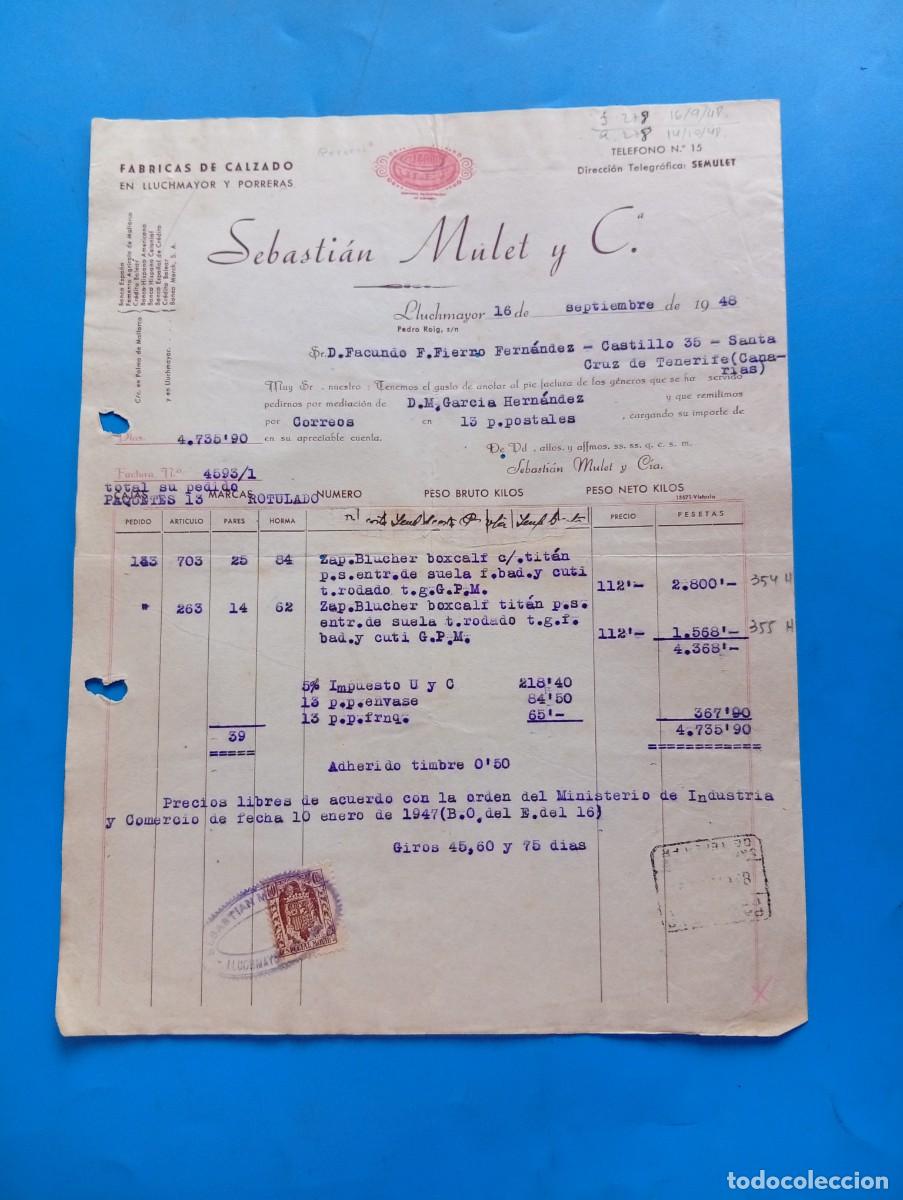 16/9/48.
278 14/10/48.
FABRICAS DE CALZADO
EN LLUCHMAYOR Y PORRERAS
TELEFONO N.º 15
Dirección Telegráfica: SEMULET
Sebastián Mulet y C.ª
C/c. en Palma de Mallorca
y en Lluchmayor. . .
Banco España
Fomento Agrícola de Mallorca
Crédito Balear
Banco Hispano Americano
Banco Hispano Colonial
Banco Español de Crédito
Crédito Balear
Banca March, S. A.
Lluchmayor 16 de septiembre de 1948
Pedro Roig, s/n
Sr. D. Facundo F. Fierro Fernández - Castillo 35 - Santa
Cruz de Tenerife (Cana-
rias)
Muy Sr. nuestro: Tenemos el gusto de anotar al pie factura de los géneros que se ha servido
pedirnos por mediación de D.M. Garcia Hernández y que remitimos
por Correos en 13 p.postales, cargando su importe de
Ptas. 4.735'90 en su apreciable cuenta.
De Vd. attos. y affmos. ss. ss. q. e. s. m.
Sebastián Mulet y Cía.
Factura N.º 4593/1
total su pedido
CAJAS MARCAS NUMERO PESO BRUTO KILOS PESO NETO KILOS
PAQUETES 13 ROTULADO
15671-Victoria
PEDIDO ARTICULO PARES HORMA PRECIO PESETAS
703 25 84 Zap.Blucher boxcalf c/.titán
p.s.entr.de suela f.bad.y cuti
t.rodado t.g.G.P.M. 112'- 2.800'- 354 H
" 263 14 62 Zap.Blucher boxcalf titán p.s.
entr.de suela t.rodado t.g.f.
bad.y cuti G.P.M. 112'- 1.568'- 355 H
4.368'-
5% Impuesto U y C 218'40
13 p.p.envase 84'50
13 p.p.frnq. 65'- 367'90
39 4.735'90
===== ============
Adherido timbre 0'50
Precios libres de acuerdo con la orden del Ministerio de Industria
y Comercio de fecha 10 enero de 1947(B.O.del E.del 16)
Giros 45,60 y 75 dias
SEBASTIAN M
LLUCHMAYOR
ESPECIAL MOVIL
todocoleccion